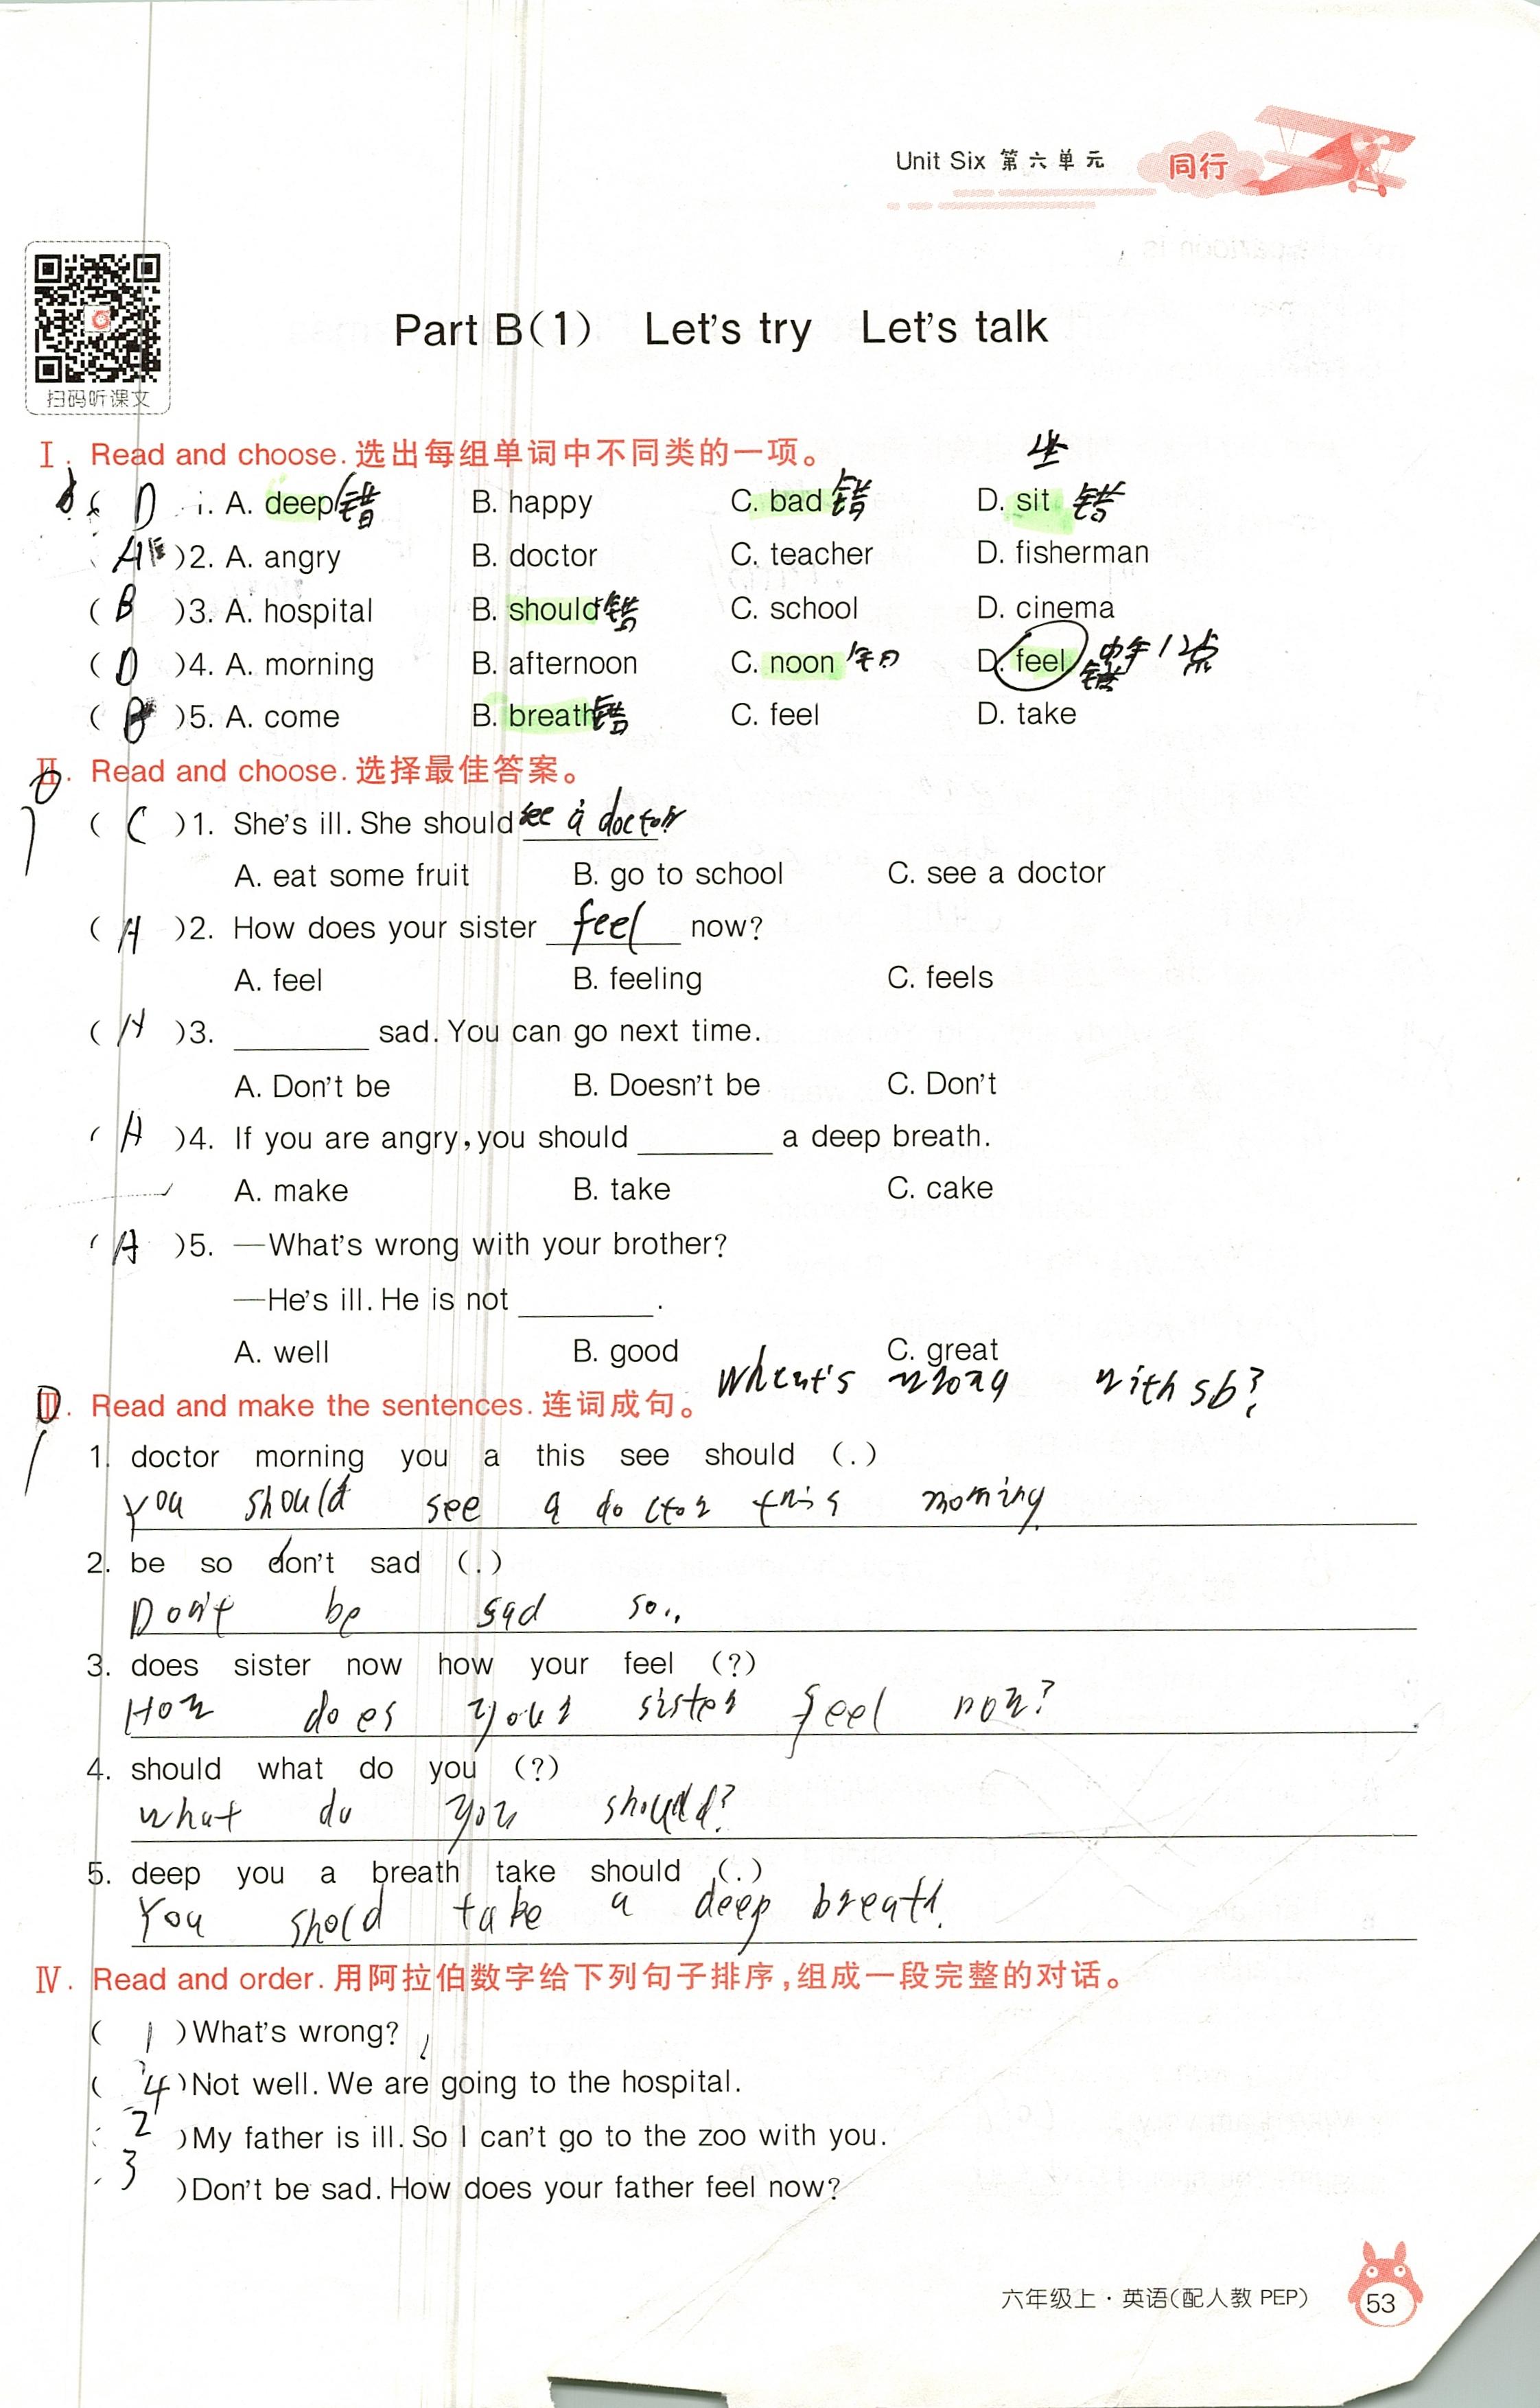 Unit Six 第六单元 同行
扫码听课文
Part B(1) Let's try Let's talk
Ⅰ. Read and choose. 选出每组单词中不同类的一项。
坐
( D 1. A. deep 错 B. happy C. bad 错 D. sit 错
A )2. A. angry B. doctor C. teacher D. fisherman
( B )3. A. hospital B. should 错 C. school D. cinema
( D )4. A. morning B. afternoon C. noon D. feel 错 中午12点
( B )5. A. come B. breath 错 C. feel D. take
Ⅱ. Read and choose. 选择最佳答案。
( C )1. She's ill. She should see a doctor
A. eat some fruit B. go to school C. see a doctor
( A )2. How does your sister feel now?
A. feel B. feeling C. feels
( A )3. ________ sad. You can go next time.
A. Don't be B. Doesn't be C. Don't
( A )4. If you are angry, you should ________ a deep breath.
A. make B. take C. cake
( A )5. —What's wrong with your brother?
—He's ill. He is not ________.
A. well B. good C. great
What's wrong with sb?
Ⅲ. Read and make the sentences. 连词成句。
1. doctor morning you a this see should (.)
You should see a doctor this morning.
2. be so don't sad (.)
Don't be sad so..
3. does sister now how your feel (?)
How does your sister feel now?
4. should what do you (?)
what do you should?
5. deep you a breath take should (.)
You shold take a deep breath.
Ⅳ. Read and order. 用阿拉伯数字给下列句子排序,组成一段完整的对话。
( 1 )What's wrong?
( 4 )Not well. We are going to the hospital.
2 )My father is ill. So I can't go to the zoo with you.
3 )Don't be sad. How does your father feel now?
六年级上·英语(配人教 PEP) 53